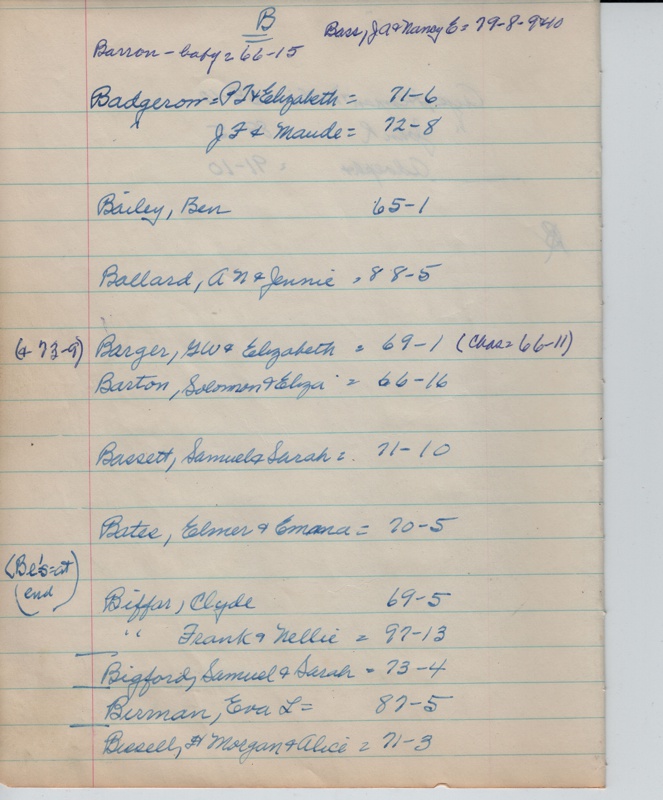 B
Bass, JA & Nancy E = 79-8-9&10
Barron - baby = 66-15
Badgerow = P T & Elizabeth = 71-6
J F & Maude = 72-8
Bailey, Ben 65-1
Ballard, A N & Jennie = 88-5
(& 73-9) Barger, GW & Elizabeth = 69-1 (Chas = 66-11)
Barton, Solomon & Eliza = 66-16
Bassett, Samuel & Sarah = 71-10
Bates, Elmer & Emma = 70-5
(Be's = at
end)
Biffar, Clyde 69-5
" Frank & Nellie = 97-13
Bigford, Samuel & Sarah = 73-4
Birman, Eva L = 87-5
Bissell, H Morgan & Alice = 71-3